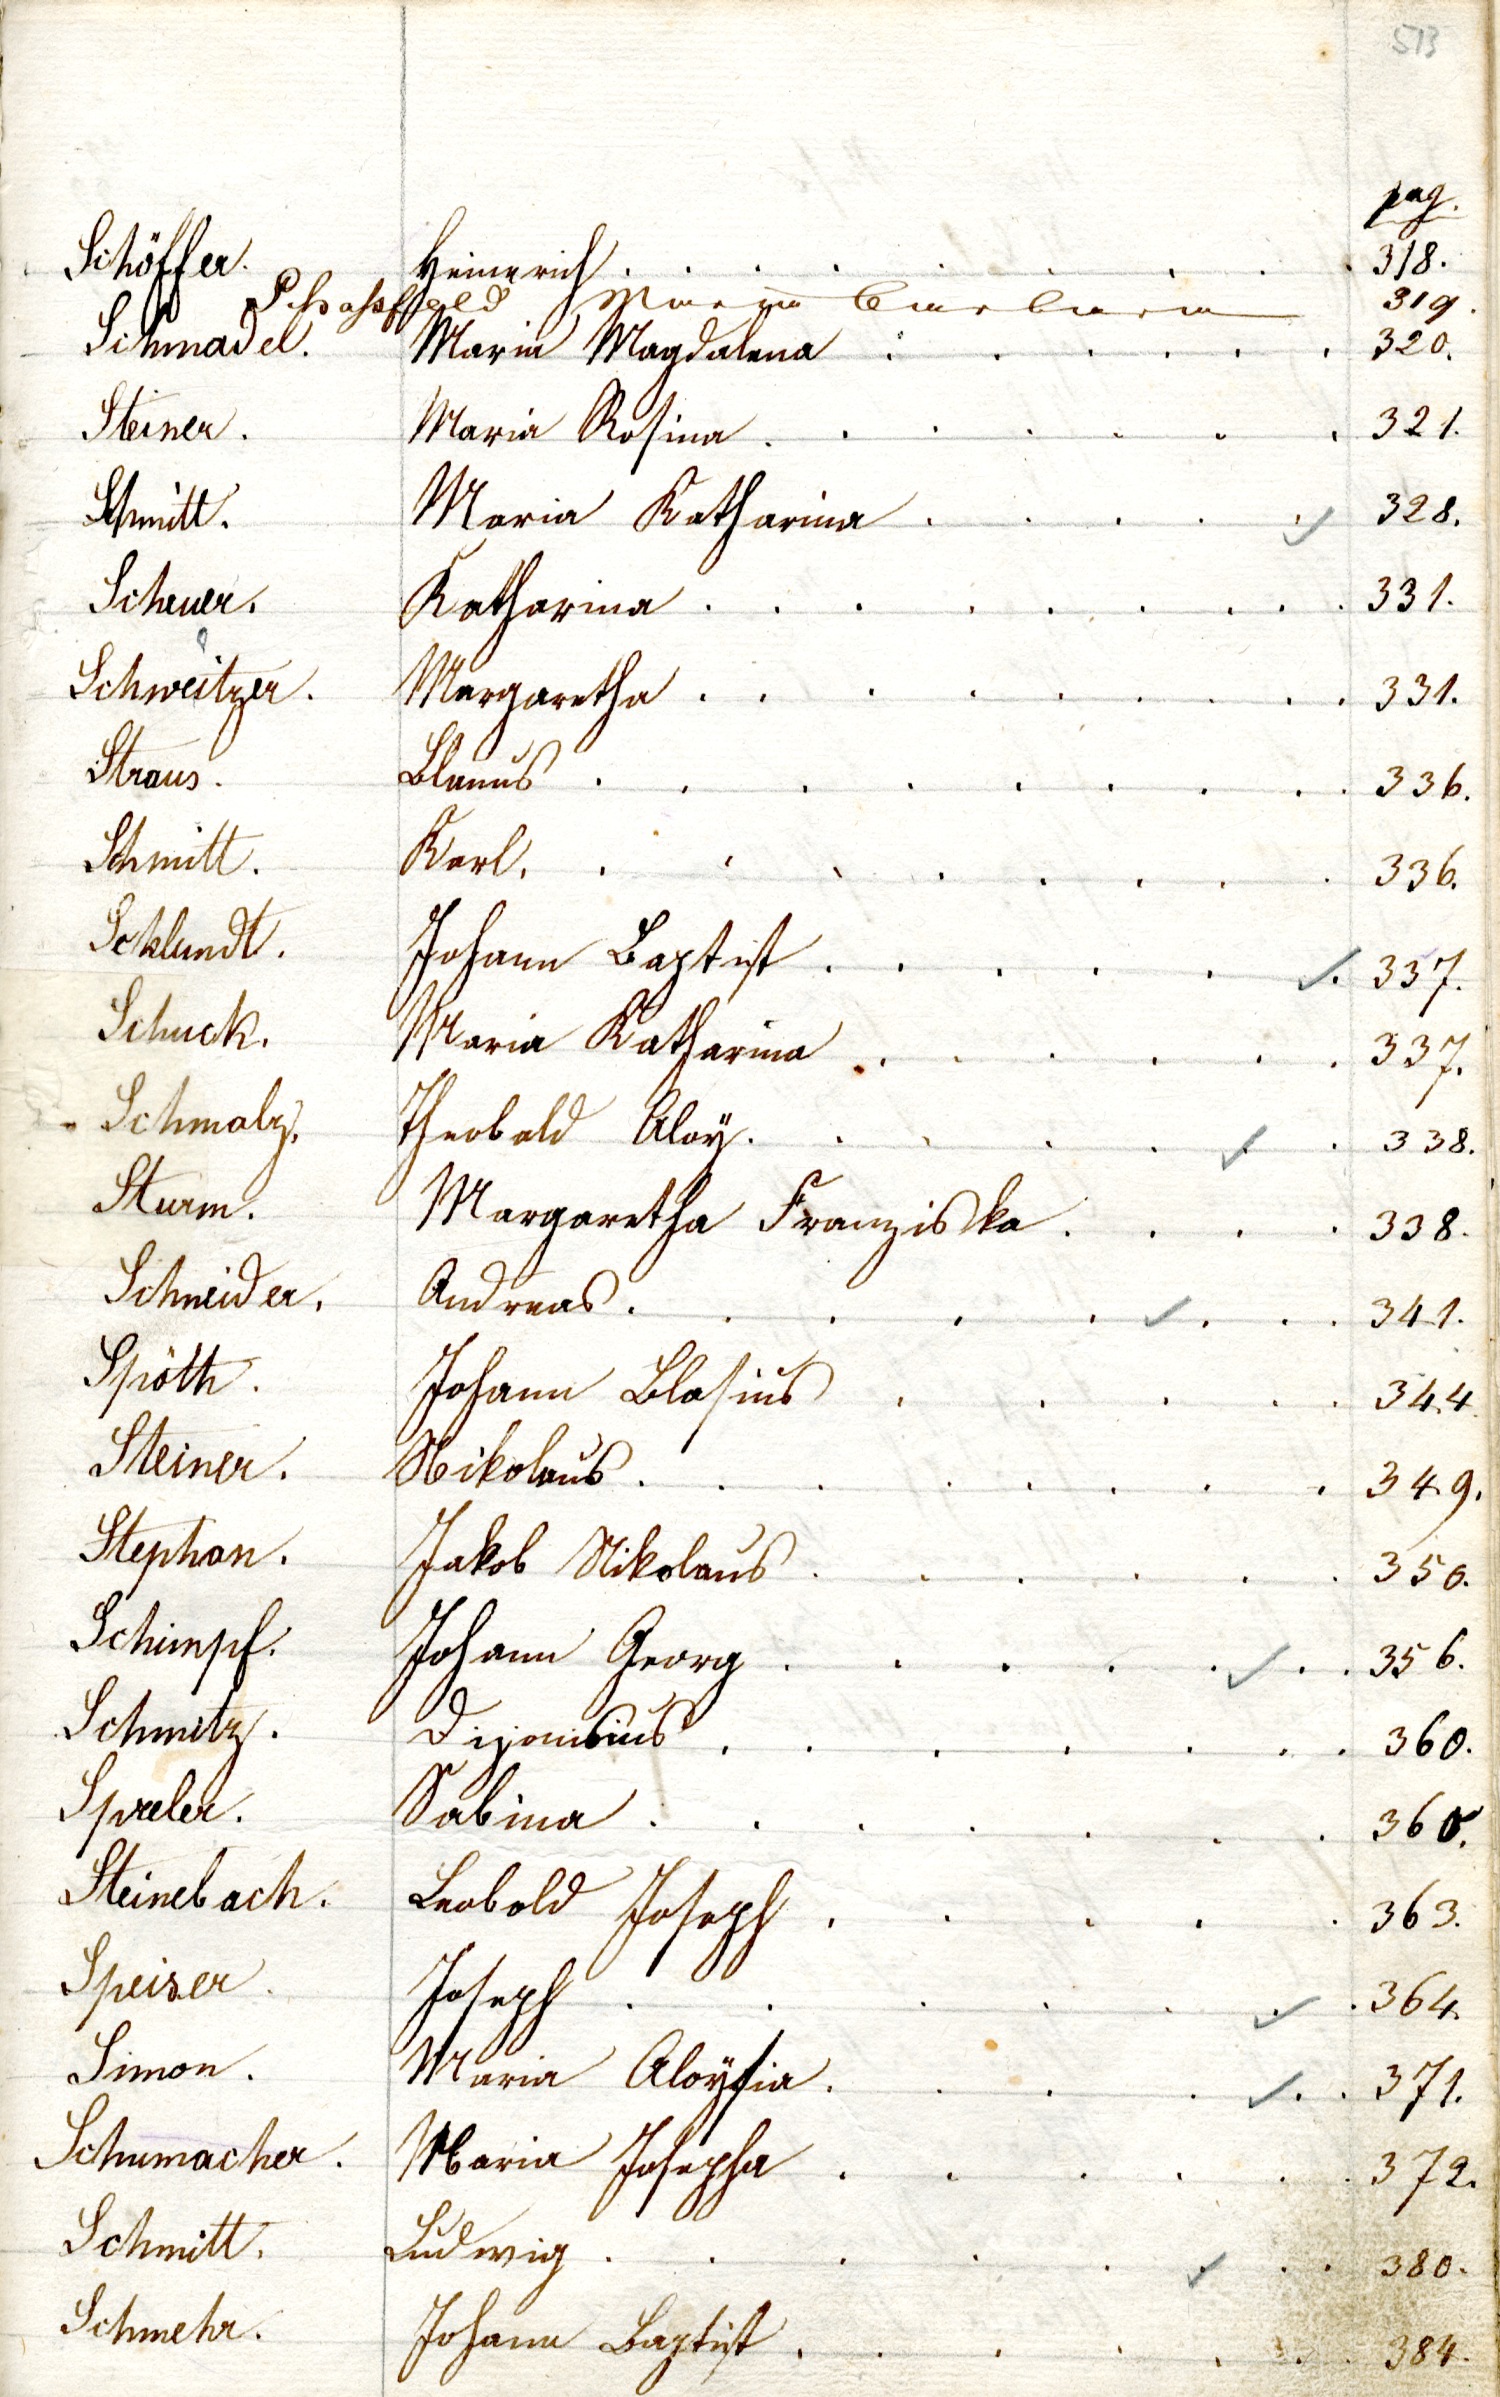 513
pag.
Schöffer. Heinerich . . . . . . . . 318.
Maria Barbara 319.
Schmadel. Maria Magdalena . . . . . . 320.
Steiner. Maria Rosina . . . . . . . 321.
Schmitt. Maria Katharina . . . . . ✓ 328.
Scheuer. Katharina . . . . . . . . . 331.
Schweitzer. Margaretha . . . . . . . . . 331.
Straus. . . . . . . . . . 336.
Schmitt. Karl. . . . . . . . . 336.
Schlundt. Johann Baptist . . . . . ✓. 337.
Schuck. Maria Katharina . . . . . . 337.
Schmalz. Theobald Aloÿ. . . . . ✓ . 338.
Sturm. Margaretha Franziska . . . . 338.
Schneider. Andreas . . . . . ✓ . . . 341.
Späth. Johann Blasius . . . . . 344.
Steiner. Nikolaus . . . . . . . . 349.
Stephan. Jakob Nikolaus . . . . . . 350.
Schimpf. Johann Georg . . . . . ✓ . . 356.
Schmitz. Dijonisius . . . . . . . 360.
Sabina . . . . . . . 360.
Steinebach. Leobold Joseph . . . . . 363.
Speiser. Joseph . . . . . . ✓ . 364.
Simon. Maria Aloÿsia . . . . ✓ . . 371.
Schumacher. Maria Josepha . . . . . . 372.
Schmitt. Ludwig . . . . . . ✓ . . 380.
Schmehr. Johann Baptist . . . . . . . 384.